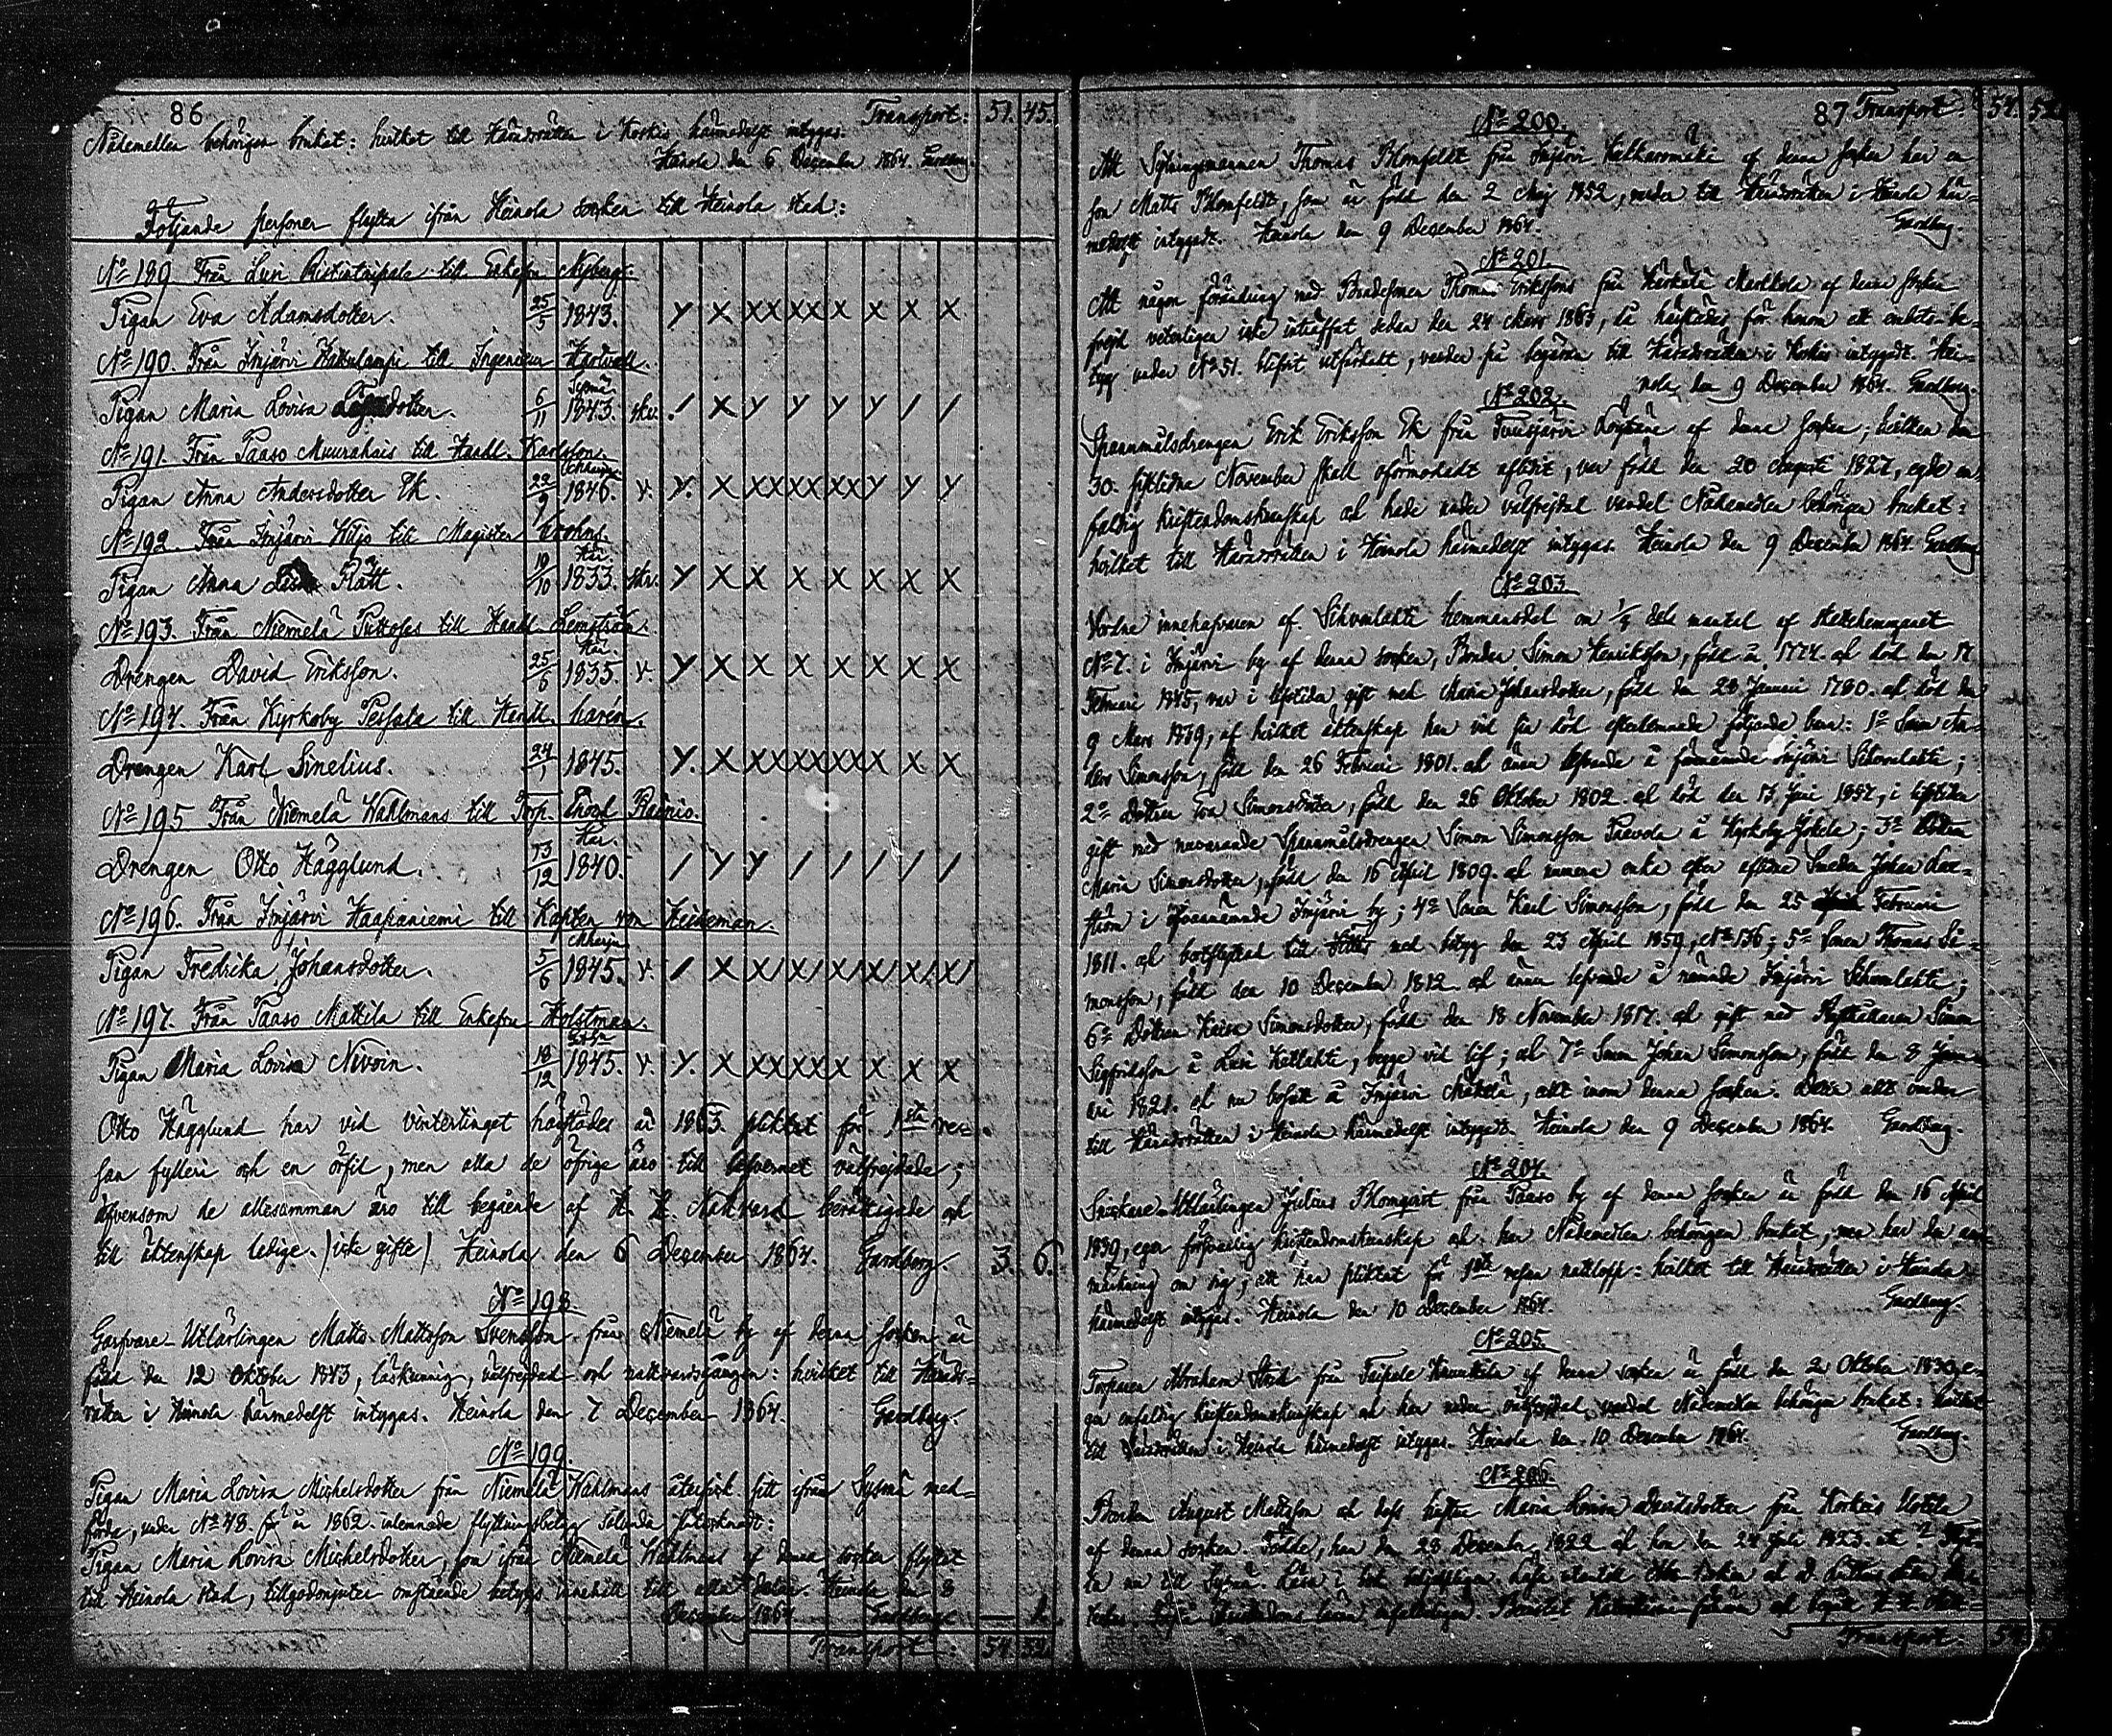 86 Transport: 51. 45.
Nådemedlen behörigen brukat: hvilket till Häradsrätten i Koskis härmedelst intygas.
Heinola den 6 December 1864. Gardberg.
Följande personer flytta ifrån Heinola socken till Heinola stad:
No 189 Från Lusi Ristintaipale till Enkefru Nyberg.
Pigan Eva Adamsdotter. 25/5 1843. y x xx xx x x x x
No 190. Från Imjärvi Hattulampi till Ingenieur Hartvall.
Sysmä
Pigan Maria Lovisa dotter. 6/11 1843. skv. / x y y y y / /
No 191. Från Paaso Muurahais till Handl. Karlsson.
Pigan Anna Andersdotter Ek. 22/9 1846. v. y. x xx xx xx y y y
No 192. Från Imjärvi Wiljo till Magister Krohns.
Hei.
Pigan Anna Rätt. 19/10 1833. skv. y x x x x x x x
No 193. Från Niemelä Puttolas till Handl.
Hei.
Drengen David Eriksson. 25/6 1835. v. y x x x x x x x
No 194. Från Kyrkoby Pessala till Handl. Lavén.
Drengen Karl Sinelius. 24/1 1845. y. x xx xx xx x x x
No 195 Från Niemelä Wahlmans till Torp. Räinio.
Hei.
Drengen Otto Hägglund. 13/12 1840. / y y / / / / /
No 196. Från Imjärvi Haapaniemi till Kapten von Heideman.
Pigan Fredrika Johansdotter. 5/6 1845. v. / x x/ x/ x/ x/ x/ x/
No 197. Från Paaso Mattila till Enkefru Holstman.
Pigan Maria Lovisa Nivoin. 18/12 1845. v. y. x xx xx x x x x
Otto Hägglund har vid vintertinget hållits år 1863 pliktat för 1sta re=
san fylleri och en örfil, men alla de öfrige äro till lefvernet välfrejdade;
äfvensom de allesamman äro till begående af H. H. Nattvard berättigade och
till äktenskap ledige. (icke gifte) Heinola den 6 December 1864. Gardberg. 3. 6.
No 198
Garfvare-Utlärlingen Matts Mattsson Svensson från Niemelä by af denna socken är
född den 12 Oktober 1843, läskunnig, välfrejdad och nattvardsgången: hvilket till Härads=
rätten i Heinola härmedelst intygas. Heinola den 7 December 1864. Gardberg.
No 199.
Pigan Maria Lovisa Michelsdotter från Niemelä Wahlmans återfick sitt ifrån Sysmä med=
förda, under No 48. för år 1862 inlemnade flyttningsbetyg sålunda påtecknadt:
Pigan Maria Lovisa Michelsdotter, som ifrån Niemelä Wahlmans af denna socken flyttat
till Heinola stad, tillgodonjuter omstående betygs innehåll till alla delar. Heinola den 8
December 1864. Gardberg. — 1.
Transport: 54. 52.
87 Transport: 54. 52.
No 200.
Att Sytningsmannen Thomas Blomfeldt från Imjärvi af denna socken har en
son Matts Blomfeldt, som är född den 2 Maj 1852, varder till Häradsrätten i Heinola här=
medelst intygadt. Heinola den 9 December 1864. Gardberg.
No 201.
Att någon förändring med Thomas Erikssons från Härkälä Markkola af denna socken
frejd veterligen icke inträffat sedan den 24 Mars 1863, då härstädes för honom ett embets-be=
tyg under No 51. blifvit utfärdadt, varder på begäran till Häradsrätten i Koskis intygadt. Hei=
nola den 9 December 1864. Gardberg.
No 202.
Spannmålsdrengen Erik Eriksson Ek från af denna socken; hvilken den
30. sistlidne November skall oförmodadt aflidit, var född den 20 Augusti 1827, egde en=
faldig kristendomskunskap och hade under välfrejdad vandel Nådemedlen behörigen brukat:
hvilket till Häradsrätten i Heinola härmedelst intygas. Heinola den 9 December 1864. Gardberg.
No 203.
Vordne innehafvaren af Sihvonlahti hemmansdel om 1/4 dels mantal af Skattehemmanet
No 7. i Imjärvi by af denna socken, Bonden Simon Henriksson, född år 1774. och död den 17
Februari 1845, var i lifstiden gift med Maria Johansdotter, född den 28 Januari 1780. och död den
9 Mars 1839, af hvilket äktenskap han vid sin död efterlemnade följande barn: 1o Sonen An=
ders Simonsson, född den 26 Februari 1801. och ännu lefvande å förenämnde Imjärvi Sihvonlahti;
2o Dottren Eva Simonsdotter, född den 26 Oktober 1802. och död den 17 Juni 1857, i lifstiden
gift med nuvarande Spannmålsdrengen Simon Simonsson Paevola å Kyrkoby Jokela; 3o Dottren
Maria Simonsdotter, född den 16 April 1809. och numera enka efter aflidne Smeden Johan
ström i ofvannämnde Imjärvi by; 4o Sonen Karl Simonsson, född den 25 Februari
1811. och bortflyttad till med betyg den 23 April 1859, No 136; 5o Sonen Thomas Si=
monsson, född den 10 December 1812 och ännu lefvande å nämnde Imjärvi Sihvonlahti;
6o Dottren Kaisa Simonsdotter, född den 18 November 1817. och gift med Simon
Sigfridsson å Lusi Ketlahti, begge vid lif; och 7o Sonen Johan Simonsson, född den 8 Janu=
ari 1821. och nu bosatt å Imjärvi Mäkelä, allt inom denna socken. Detta allt varder
till Häradsrätten i Heinola härmedelst intygadt. Heinola den 9 December 1864. Gardberg.
No 204.
Snickare-Utlärlingen Julius Blomqvist från Paaso by af denna socken är född den 16 April
1839, eger försvarlig kristendomskunskap och har Nådemedlen behörigen brukat, men har den an=
märkning om sig, att han pliktat för 1sta resan nattlopp: hvilket till Häradsrätten i Heinola
härmedelst intygas. Heinola den 10 December 1864. Gardberg.
No 205.
Torparen Abraham från Taipale af denna socken är född den 2 Oktober 1830, e=
ger enfaldig kristendomskunskap och har under välfrejdad vandel Nådemedlen behörigen brukat: hvilket
till Häradsrätten i Heinola härmedelst intygas. Heinola den 10 December 1864. Gardberg.
No 206.
Bonden August Mattsson och dess hustru Maria Lovisa Davidsdotter från
af denna socken. Födde, han den 28 December 1822 och hon den 24 Juli 1823. flyt=
ta nu till Sysmä. Läsa i bok
Transport: 54.